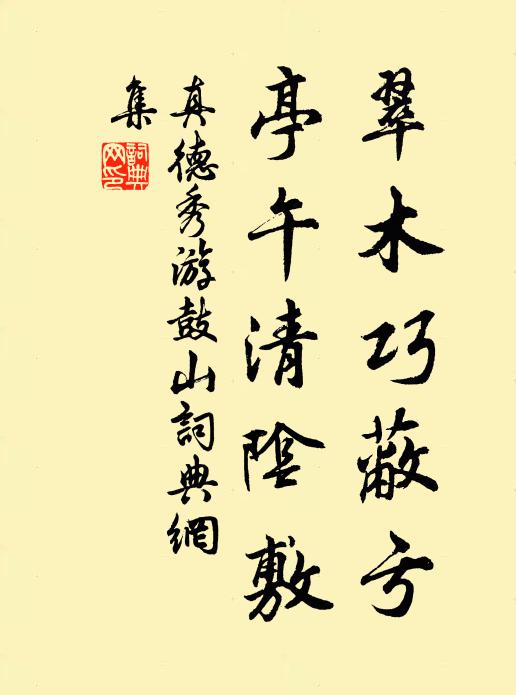 翠木巧蔽亏
亭午清陰敷
真德秀游鼓山詞典網
集
詞典
网印